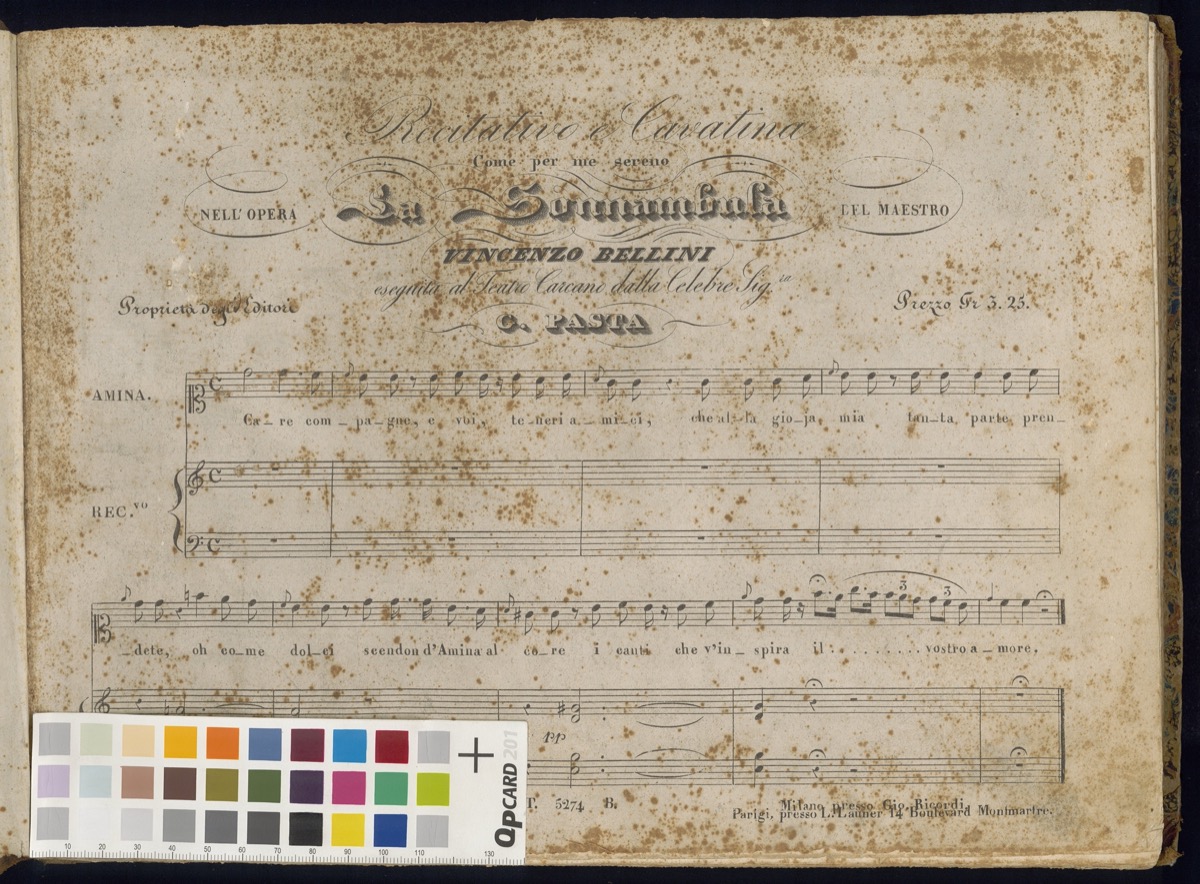 Recitativo e Cavatina
Come per me sereno
NELL' OPERA La Sonnambula DEL MAESTRO
VINCENZO BELLINI
eseguita al Teatro Carcano dalla Celebre Sig.ra
Proprietà degli Editori Prezzo Fr 3. 25.
C. PASTA
AMINA.
Ca_re com_pa_gne, e voi, te_neri a_mi_ci, che al_la gio_ja mia tan_ta parte pren_
REC.vo
_dete, oh co_me dol_ci scendon d'Amina al co_re i canti che v'in_spira il ......... vostro a_more.
3 3
pp
T. 5274 B.
Milano presso Gio. Ricordi.
Parigi, presso L. Launer 14 Boulevard Montmartre.
QPCARD 201
10 20 30 40 50 60 70 80 90 100 110 130